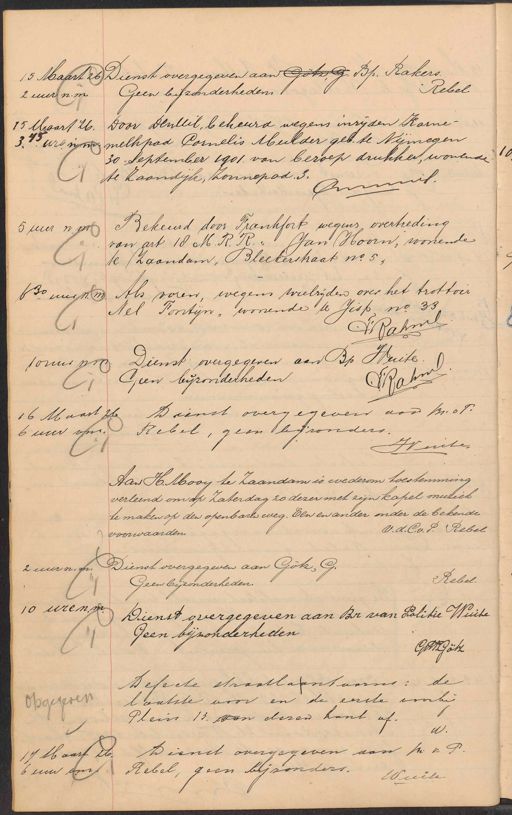 15 Maart 26 Dienst overgegeven aan Göke, G. Bp. Rakers.
2 uur n.m. Geen bijzonderheden Rebel
15 Maart 26. Door bekeurd wegens inrijden Karne-
3.45 uur n.m. melkpad Cornelis Mulder geb. te Nijmegen
30 September 1901 van beroep drukker, wonende
te Zaandijk, Zonnepad 3.
5 uur n.m. Bekeurd door Frankfort wegens overtreding
van art 18 M.R.R. Jan Hoorn, wonende
te Zaandam, Bleekerstraat no 5,
8 30 uur n.m. Als voren, wegens wielrijden over het trottoir
Nel Fontyn, wonende te Jisp, no 33
10 uur n.m. Dienst overgegeven aan Bp Wuite.
Geen bijzonderheden
16 Maart 26 Dienst overgegeven aan m. v. P.
6 uur vm. Rebel, geen bijzonders.
Wuite
Aan H Mooy te Zaandam is wederom toestemming
verleend om op Zaterdag 20 dezer met zijn kapel muziek
te maken op den openbare weg. Een en ander onder de bekende
voorwaarden. v.d. C.v.P. Rebel
2 uur n.m. Dienst overgegeven aan Göke, G.
Geen bijzonderheden Rebel
10 uren n.m. Dienst overgegeven aan Br van Politie Wuite
Geen bijzonderheden
Göke
opgegeven
Defecte straatlantaarns: de
laatste voor en de eerste voorbij
Plein 13 van dezen kant af.
W.
17 Maart 26. Dienst overgegeven aan m. v. P.
6 uur vm. Rebel, geen bijzonders.
Wuite